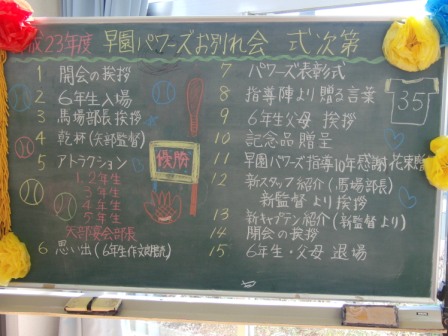 平成23年度 早園パワーズお別れ会 式次第
1 開会の挨拶
2 6年生入場
3 馬場部長挨拶
4 乾杯(矢部監督)
5 アトラクション
1.2年生
3年生
4年生
5年生
矢部宴会部長
6 思い出(6年生作文朗読)
優勝
7 パワーズ表彰式
8 指導陣より贈る言葉
9 6年生父母 挨拶
10 記念品贈呈
11 早園パワーズ指導10年感謝 花束贈
12 新スタッフ紹介(馬場部長)
新監督より挨拶
13 新キャプテン紹介(新監督より)
14 閉会の挨拶
15 6年生・父母 退場
35